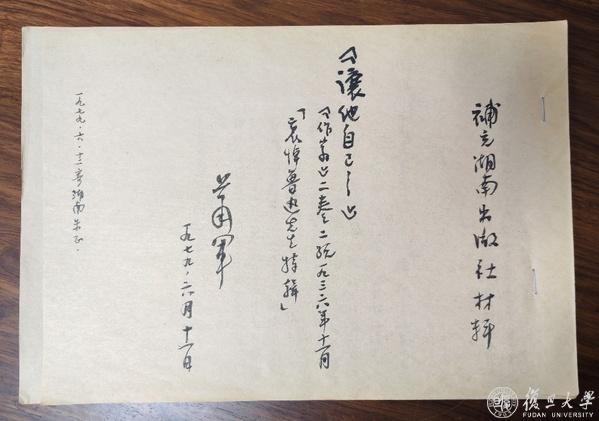 補充湖南出版社材料
《讓他自己……》
《作家》二卷二號一九三六年十一月
「哀悼魯迅先生特輯」
蕭軍
一九七九、六月十一日
一九七九.六.十二寄湖南朱正.
復旦大學
FUDAN UNIVERSITY